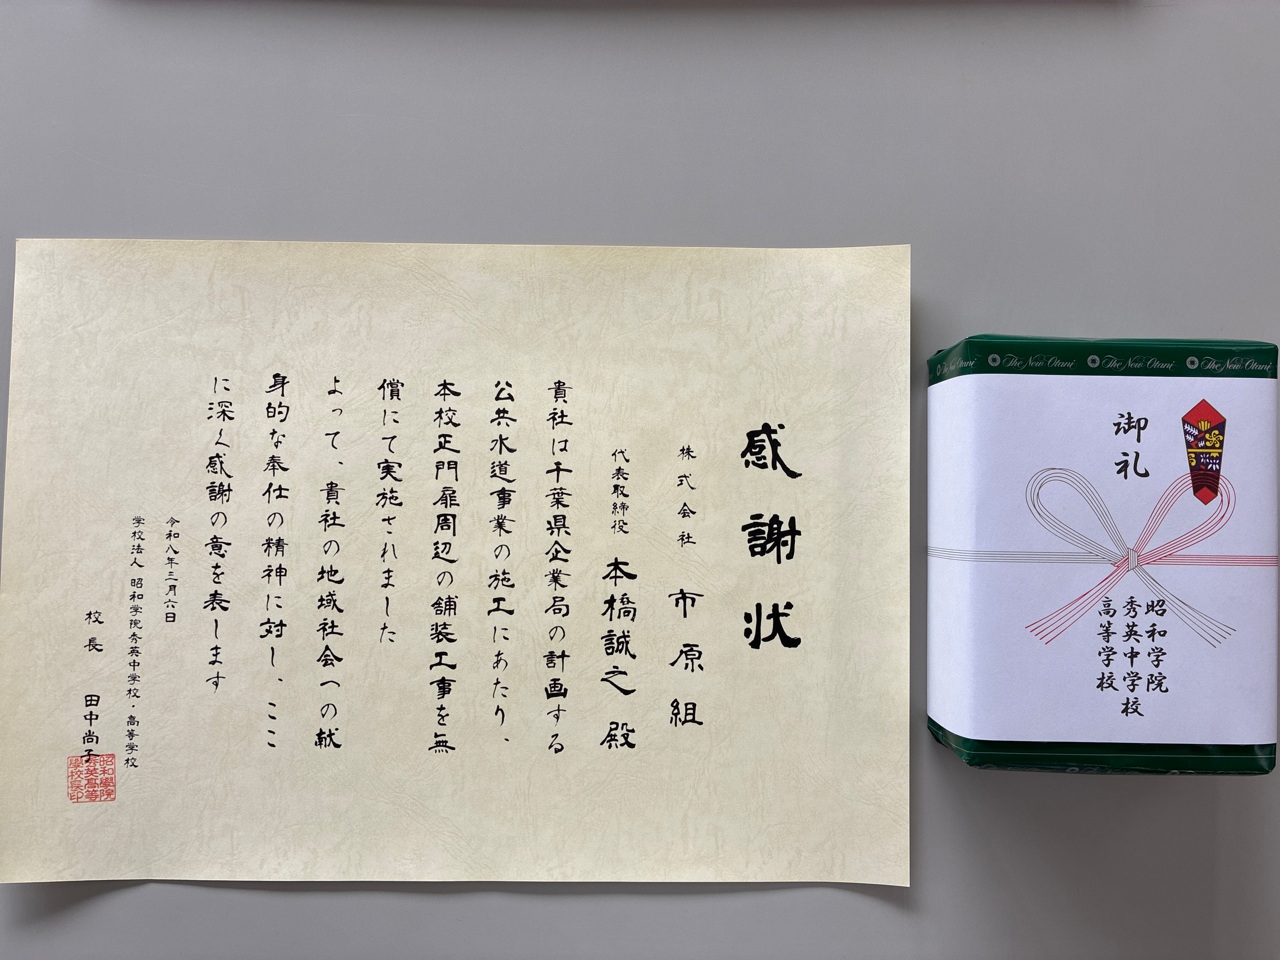 感謝状
株式会社 市原組
代表取締役 本橋誠之 殿
貴社は千葉県企業局の計画する
公共水道事業の施工にあたり、
本校正門扉周辺の舗装工事を無
償にて実施されました
よって、貴社の地域社会への献
身的な奉仕の精神に対し、ここ
に深く感謝の意を表します
令和八年三月六日
学校法人 昭和学院秀英中学校・高等学校
校長 田中尚子
昭和學院
秀英高等
學校長印
The New Otani
The New Otani
The New Otani
The New Otani
御礼
昭和学院
秀英中学校
高等学校